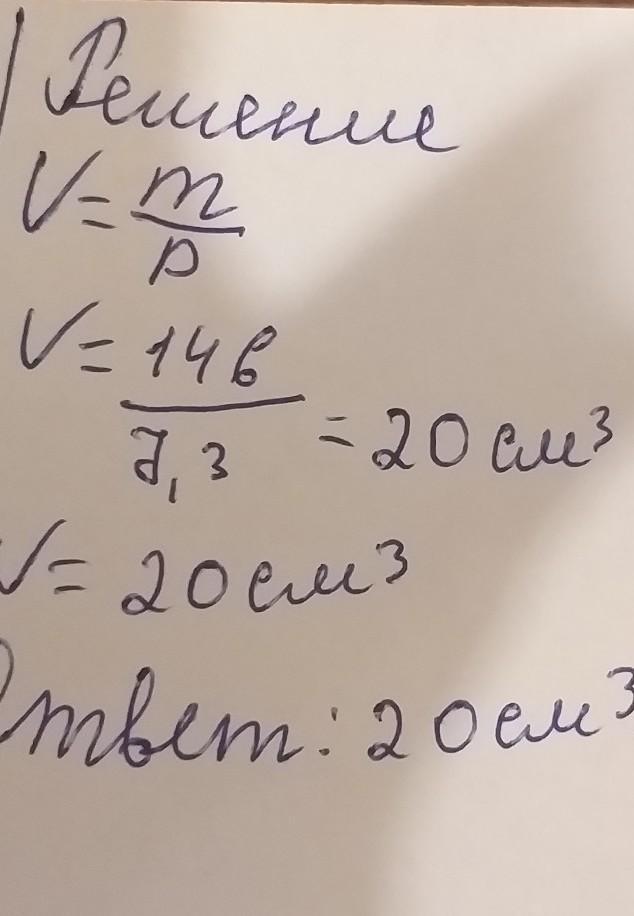 Решение
V = m
ρ
V = 146
7,3 = 20 см³
V = 20 см³
Ответ: 20 см³